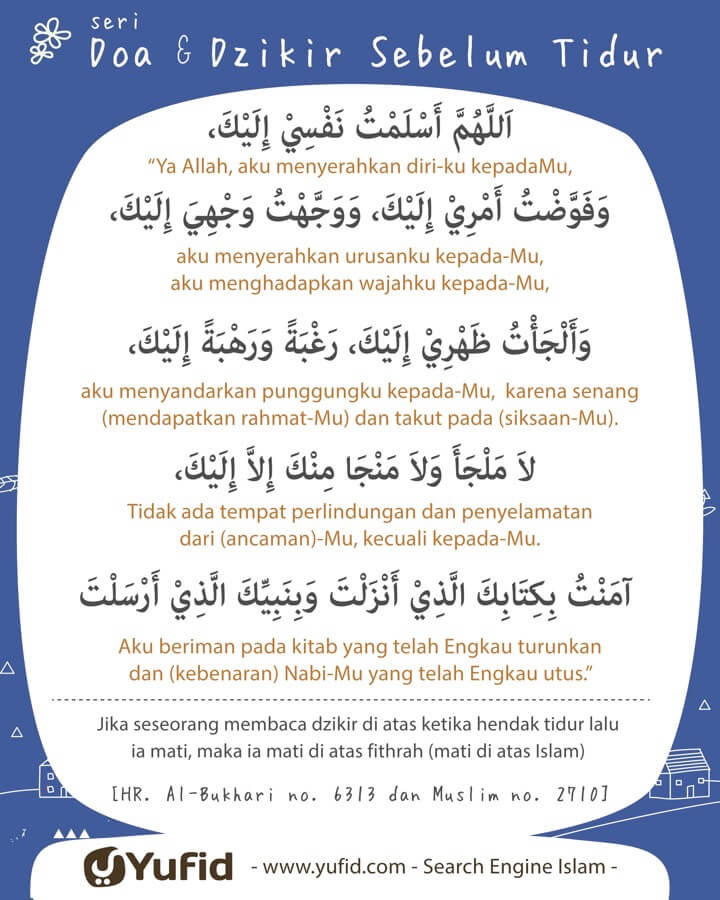 seri
Doa & Dzikir Sebelum Tidur
اَللَّهُمَّ أَسْلَمْتُ نَفْسِيْ إِلَيْكَ،
“Ya Allah, aku menyerahkan diri-ku kepadaMu,
وَفَوَّضْتُ أَمْرِيْ إِلَيْكَ، وَوَجَّهْتُ وَجْهِيَ إِلَيْكَ،
aku menyerahkan urusanku kepada-Mu,
aku menghadapkan wajahku kepada-Mu,
وَأَلْجَأْتُ ظَهْرِيْ إِلَيْكَ، رَغْبَةً وَرَهْبَةً إِلَيْكَ،
aku menyandarkan punggungku kepada-Mu, karena senang
(mendapatkan rahmat-Mu) dan takut pada (siksaan-Mu).
لاَ مَلْجَأَ وَلاَ مَنْجَا مِنْكَ إِلاَّ إِلَيْكَ،
Tidak ada tempat perlindungan dan penyelamatan
dari (ancaman)-Mu, kecuali kepada-Mu.
آمَنْتُ بِكِتَابِكَ الَّذِيْ أَنْزَلْتَ وَبِنَبِيِّكَ الَّذِيْ أَرْسَلْتَ
Aku beriman pada kitab yang telah Engkau turunkan
dan (kebenaran) Nabi-Mu yang telah Engkau utus.”
Jika seseorang membaca dzikir di atas ketika hendak tidur lalu
ia mati, maka ia mati di atas fithrah (mati di atas Islam)
[HR. Al-Bukhari no. 6313 dan Muslim no. 2710]
Yufid - www.yufid.com - Search Engine Islam -